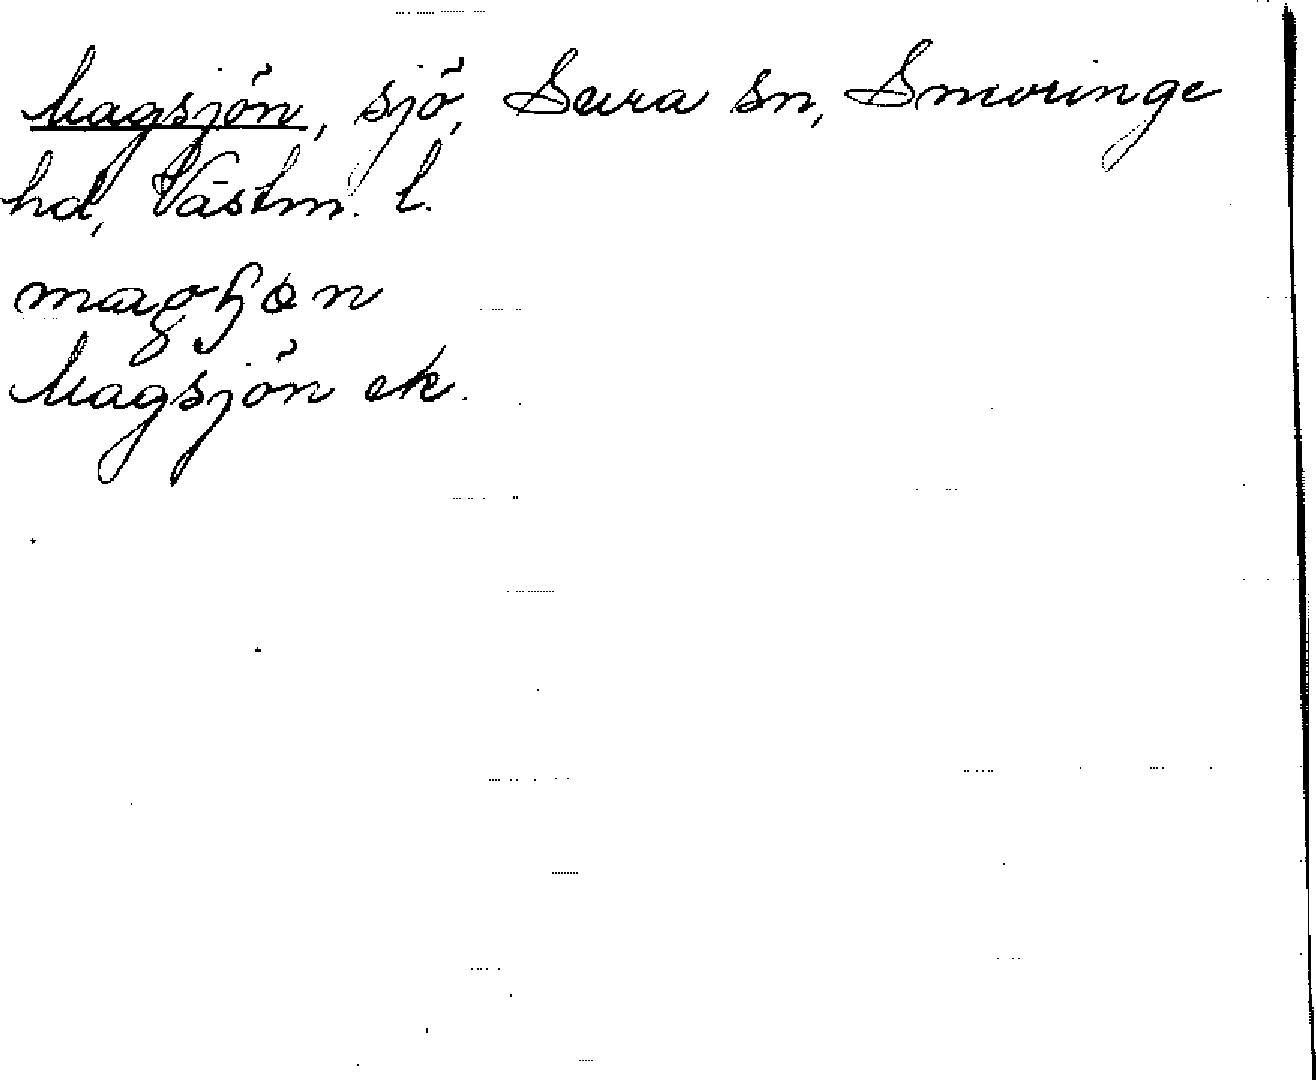 Magsjön, sjö, Sura sn, Snevringe
hd, Västm. l.
Magsjön ek.